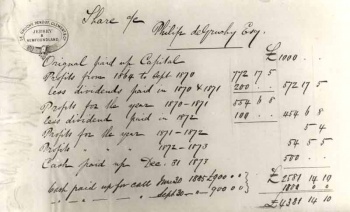 JERSEY
&
NEWFOUNDLAND.
Share a/c
Philip deGruchy Esq.
Original paid up Capital £1000 . .
Profits from 1864 to Sept 1870 772 17 5
Less dividends paid in 1870 & 1871 200 . . 572 17 5
Profits for the year 1870-1871 554 6 8
less dividend paid in 1872 100 . . 454 6 8
Profits for the year 1871-1872 5 4
Profits " " " 1872-1873 54 5
Cash paid up Dec. 31 1873 500 . .
£ 2581 14 10
Cash paid up for call June 30 1885 £900 " "
" " " " Sept 30 " 900 0 0
£ 4381 14 10